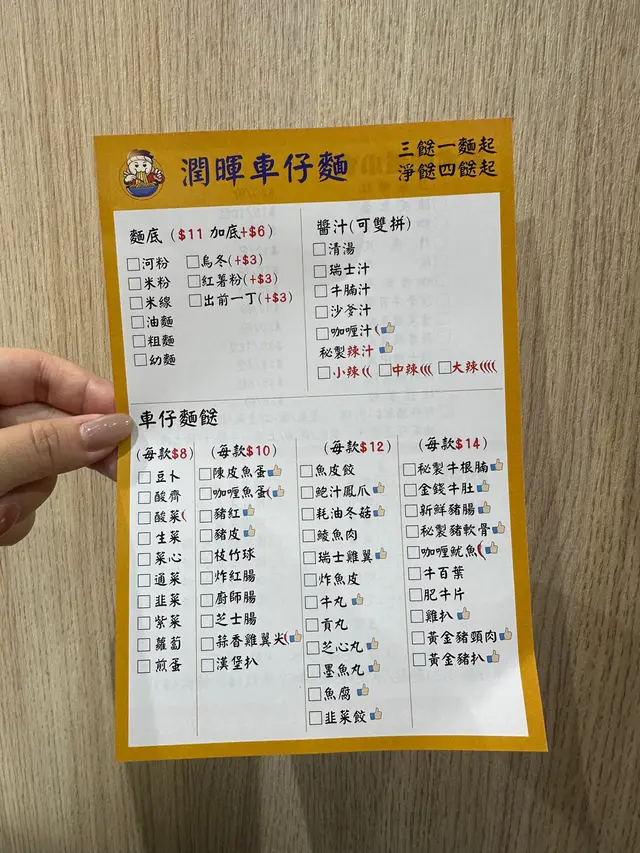 潤暉車仔麵
三餸一麵起
淨餸四餸起
麵底 ($11 加底+$6)
□河粉 □烏冬(+$3)
□米粉 □紅薯粉(+$3)
□米線 □出前一丁(+$3)
□油麵
□粗麵
□幼麵
醬汁(可雙拼)
□清湯
□瑞士汁
□牛腩汁
□沙爹汁
□咖喱汁
秘製辣汁
□小辣 □中辣 □大辣
車仔麵餸
(每款$8)
□豆卜
□酸齋
□酸菜
□生菜
□菜心
□通菜
□韭菜
□紫菜
□蘿蔔
□煎蛋
(每款$10)
□陳皮魚蛋
□咖喱魚蛋
□豬紅
□豬皮
□枝竹球
□炸紅腸
□廚師腸
□芝士腸
□蒜香雞翼尖
□漢堡扒
(每款$12)
□魚皮餃
□鮑汁鳳爪
□耗油冬菇
□鯪魚肉
□瑞士雞翼
□炸魚皮
□牛丸
□貢丸
□芝心丸
□墨魚丸
□魚腐
□韭菜餃
(每款$14)
□秘製牛根腩
□金錢牛肚
□新鮮豬腸
□秘製豬軟骨
□咖喱魷魚
□牛百葉
□肥牛片
□雞扒
□黃金豬頸肉
□黃金豬扒